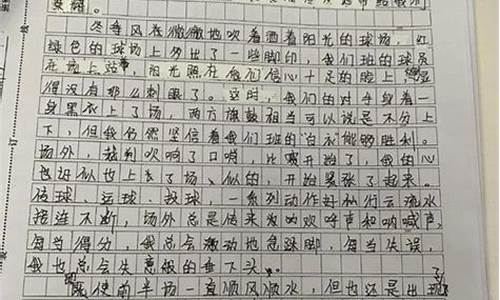 冬季风在微微地吹着洒着阳光的球场,红
绿色的球场上多出了一些脚印,我们班的球员
在场上站,阳光照在他们信心十足的脸上
得没有那么刺眼了。这时,我们的对手身着一
身黑衣上了场,两方旗鼓相当可以说是不分上
下,但我仍然坚信着我们班的“白衣能够胜利。
场外,裁判吹响了口哨,比赛开始了,我的心
也好似也上了场、似的,开始紧张了起来。
传球、运球、投球,一系列动作好似行云流水
接连不断,场外总是传来欢呼声和呐喊声,
每当得分,我总会激动地急跺脚,每当失误,
我也总会失意般的垂下头。
既使前半场一直顺风顺水,但也还是出现